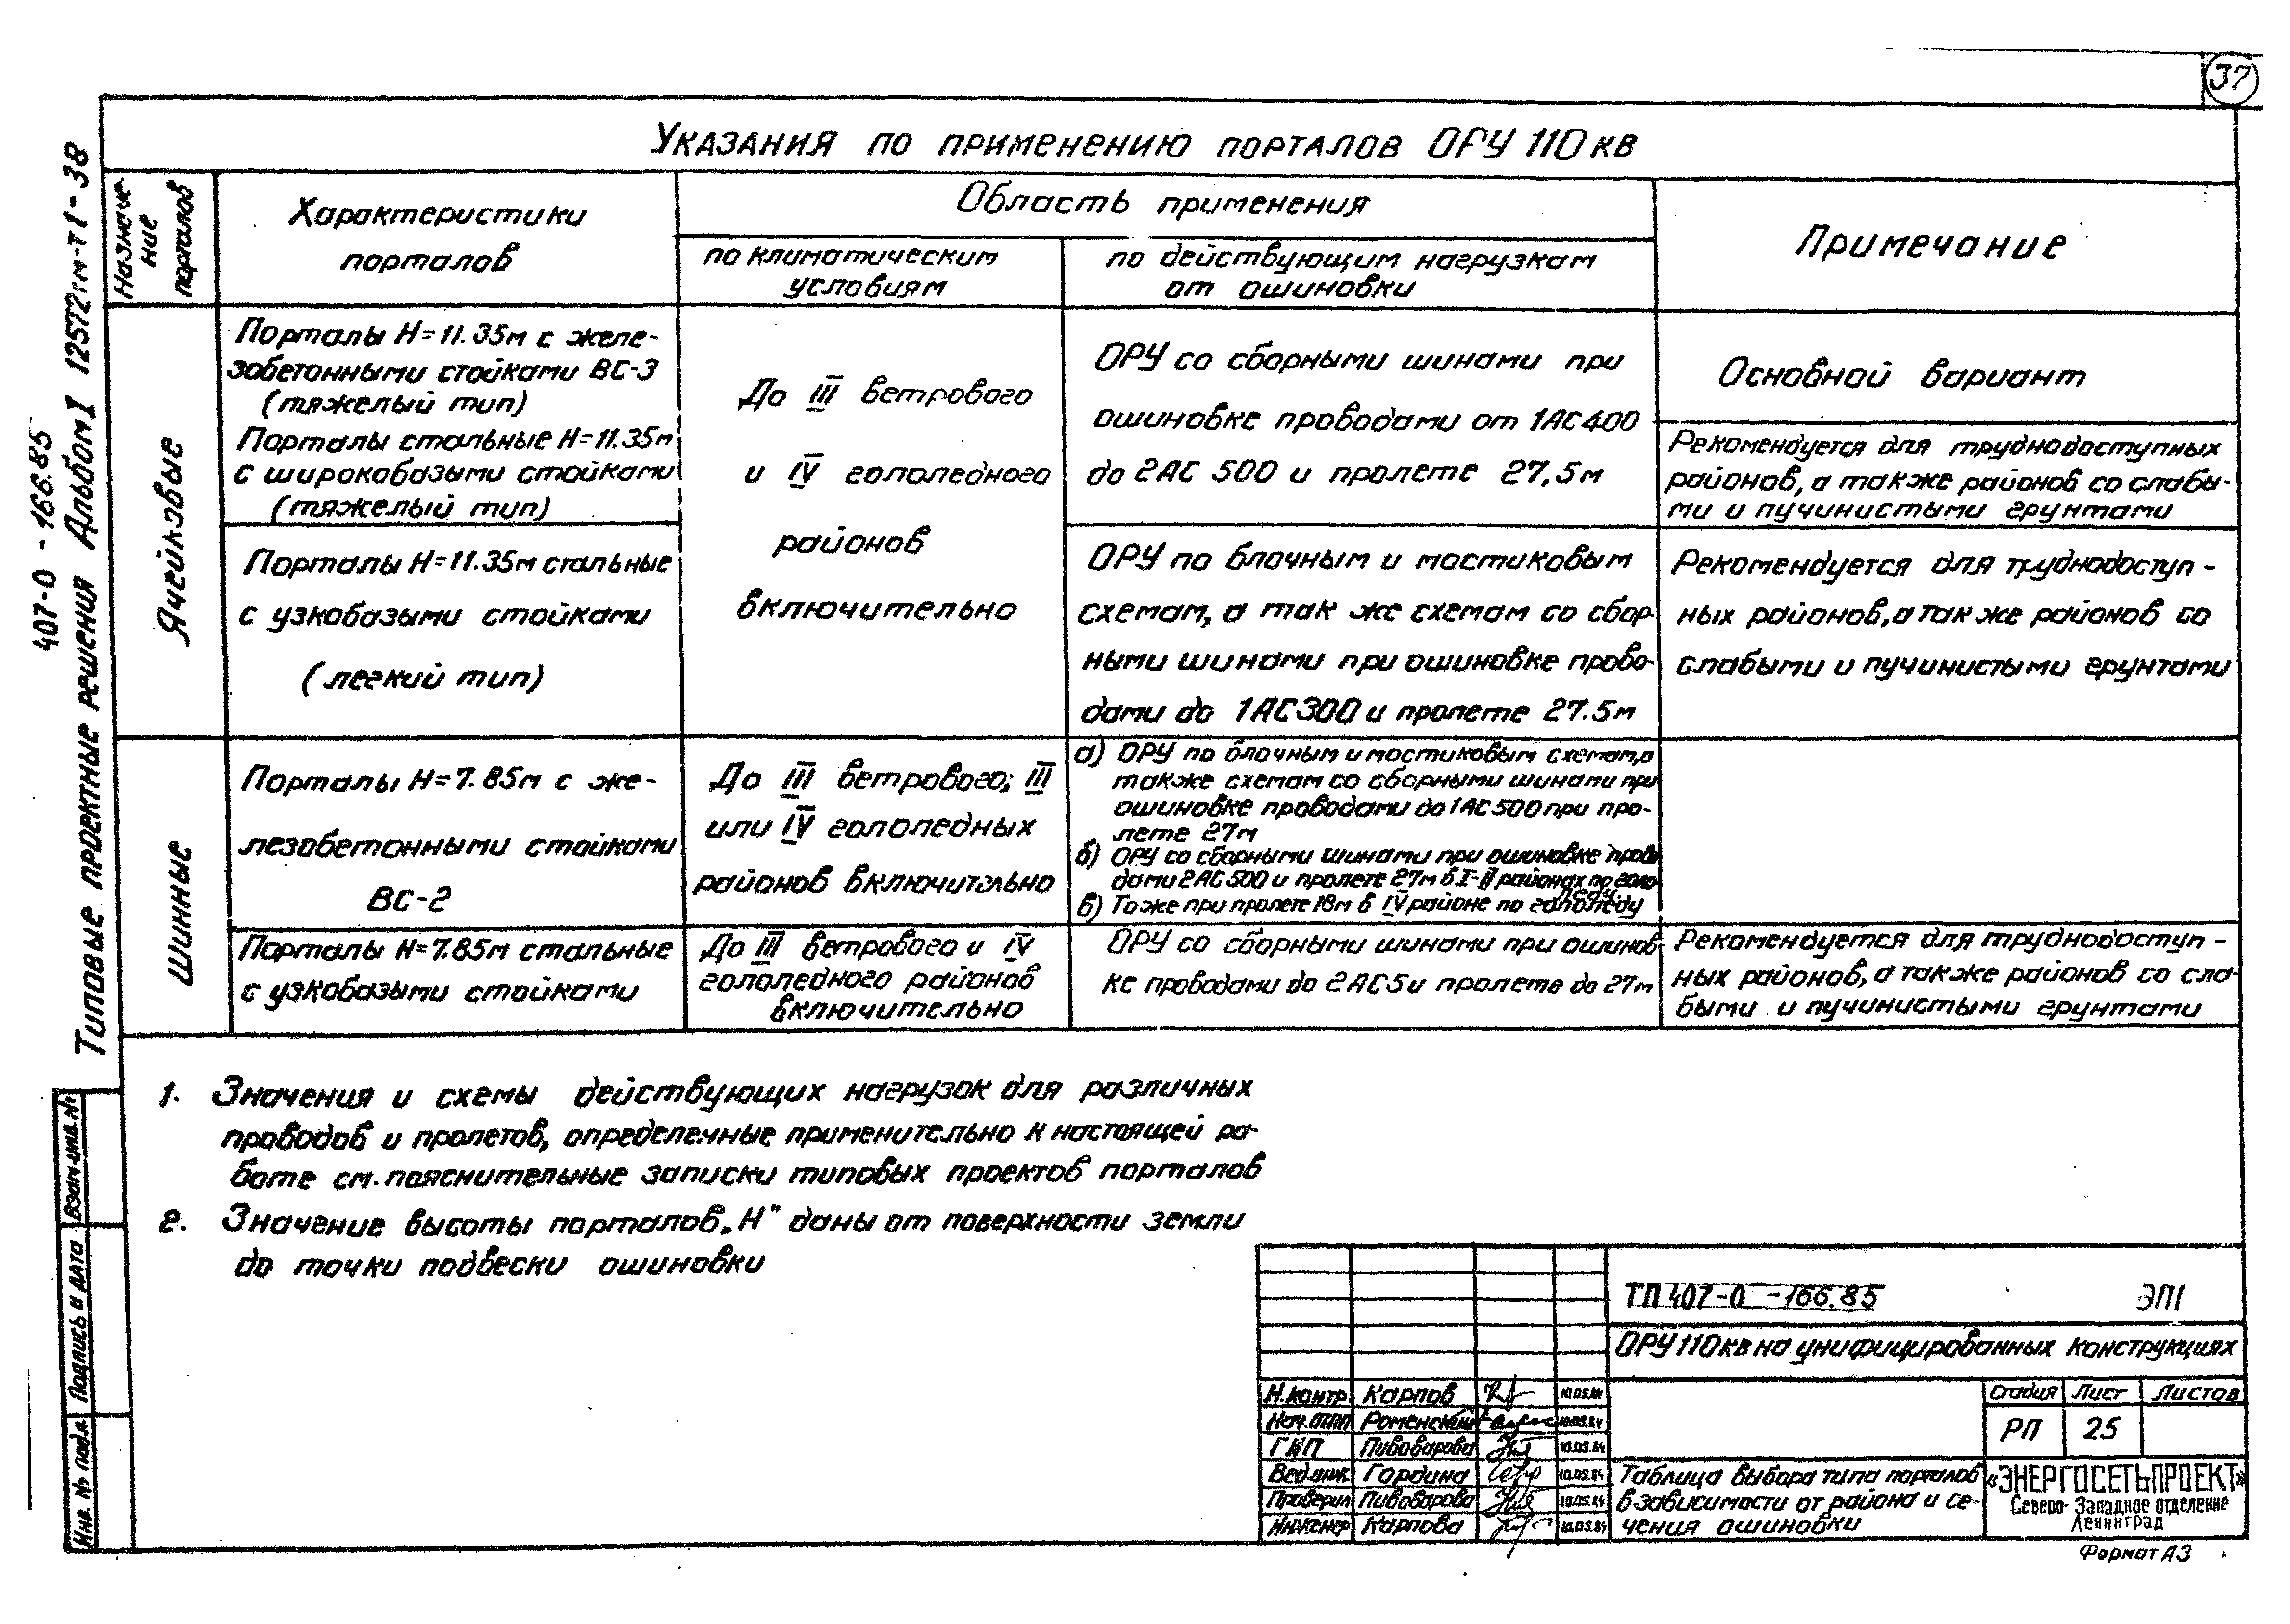 37
Указания по применению порталов ОРУ 110 кв
Назначе
ние
порталов
Характеристики
порталов
Область применения
по климатическим
условиям
по действующим нагрузкам
от ошиновки
Примечание
Ячейковые
Порталы Н=11.35м с желе-
зобетонными стойками ВС-3
(тяжелый тип)
Порталы стальные Н=11.35м
с широкобазыми стойками
(тяжелый тип)
До III ветрового
и IV гололедного
районов
включительно
ОРУ со сборными шинами при
ошиновке проводами от 1АС400
до 2АС 500 и пролете 27,5м
Основной вариант
Рекомендуется для труднодоступных
районов, а также районов со слабы-
ми и пучинистыми грунтами
Порталы Н=11.35м стальные
с узкобазыми стойками
(легкий тип)
ОРУ по блочным и мостиковым
схемам, а так же схемам со сбор-
ными шинами при ошиновке прово-
дами до 1АС300 и пролете 27.5м
Рекомендуется для труднодоступ-
ных районов, а так же районов со
слабыми и пучинистыми грунтами
Шинные
Порталы Н=7.85м с же-
лезобетонными стойками
ВС-2
До III ветрового; III
или IV гололедных
районов включительно
а) ОРУ по блочным и мостиковым схемам, а
также схемам со сборными шинами при
ошиновке проводами до 1АС500 при про-
лете 27м
б) ОРУ со сборными шинами при ошиновке прово-
дами 2АС500 и пролете 27м в I-II районах по голо-
леду
в) Тоже при пролете 18м в IV районе по гололеду
Порталы Н=7.85м стальные
с узкобазыми стойками
До III ветрового и IV
гололедного районов
включительно
ОРУ со сборными шинами при ошинов-
ке проводами до 2АС5 и пролете до 27м
Рекомендуется для труднодоступ-
ных районов, а также районов со сла-
быми и пучинистыми грунтами
1. Значения и схемы действующих нагрузок для различных
проводов и пролетов, определенные применительно к настоящей ра-
боте см. пояснительные записки типовых проектов порталов
2. Значение высоты порталов „Н" даны от поверхности земли
до точки подвески ошиновки
407-0-166.85
Типовые проектные решения Альбом I 12572тм-т1-38
Взам.инв.№
Подпись и дата
Инв. № подл.
ТП 407-0-166.85 ЭП1
ОРУ 110 кв на унифицированных конструкциях
Н.контр. Карпов 10.05.84
Нач.ОТПП Роменский 10.05.84
ГИП Пивоварова 10.05.84
Вед.инж. Гордина 10.05.84
Проверил Пивоварова 10.05.84
Инженер Карпова 10.05.84
Стадия Лист Листов
РП 25
Таблица выбора типа порталов
в зависимости от района и се-
чения ошиновки
«ЭНЕРГОСЕТЬПРОЕКТ»
Северо-Западное отделение
Ленинград
Формат А3